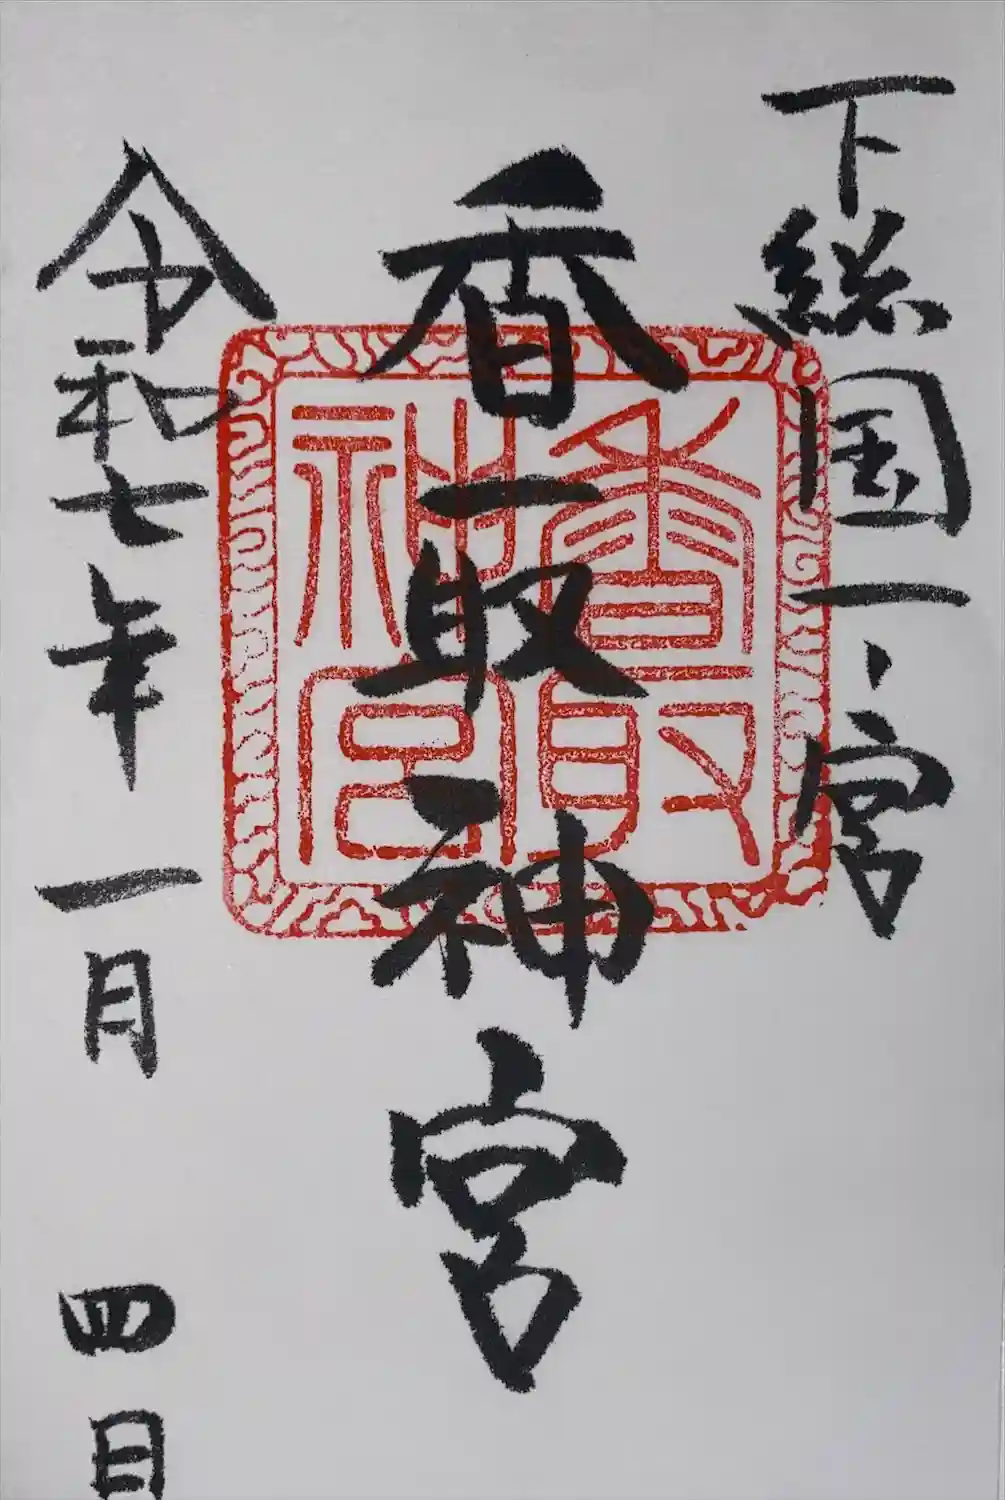 下総国一之宮
香取神宮
香取
神宮
令和七年一月四日